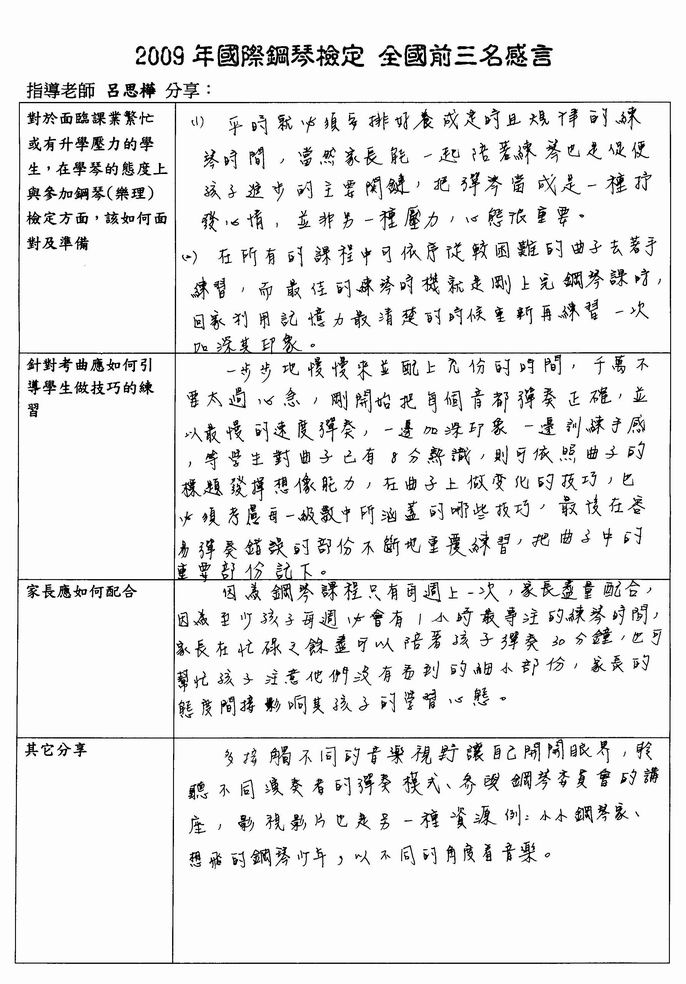 2009 年國際鋼琴檢定 全國前三名感言
指導老師 呂思樺 分享：
對於面臨課業繁忙
或有升學壓力的學
生，在學琴的態度上
與參加鋼琴(樂理)
檢定方面，該如何面
對及準備
(1) 平時就必須安排好養成定時且規律的練
琴時間，當然家長能一起陪著練琴也是促使
孩子進步的主要関鍵，把彈琴當成是一種抒
發心情，並非另一種壓力，心態很重要。
(2) 在所有的課程中可依序從較困難的曲子去著手
練習，而最佳的練琴時機就是剛上完鋼琴課時，
回家利用記憶力最清楚的時候重新再練習一次
加深其印象。
針對考曲應如何引
導學生做技巧的練
習
一步步地慢慢來並配上充份的時間，千萬不
要太過心急，剛開始把每個音都彈奏正確，並
以最慢的速度彈奏，一邊加深印象一邊訓練手感
，等學生對曲子已有8分熟識，則可依照曲子的
標題發揮想像能力，在曲子上做變化的技巧，也
必須考慮每一級數中所涵蓋的哪些技巧，最後在容
易彈奏錯誤的部份不斷地重覆練習，把曲子中的
重要部份記下。
家長應如何配合
因為鋼琴課程只有每週上一次，家長盡量配合，
因為至少孩子每週必會有1小時最專注的練琴時間，
家長在忙碌之餘盡可以陪著孩子彈奏30分鐘，也可
幫忙孩子注意他們沒有看到的細小部份，家長的
態度間接影响其孩子的學習心態。
其它分享
多接觸不同的音樂視野讓自己開開眼界，聆
聽不同演奏者的彈奏模式、參與鋼琴委員會的講
座，影視影片也是另一種資源例：小小鋼琴家、
想飛的鋼琴少年，以不同的角度看音樂。